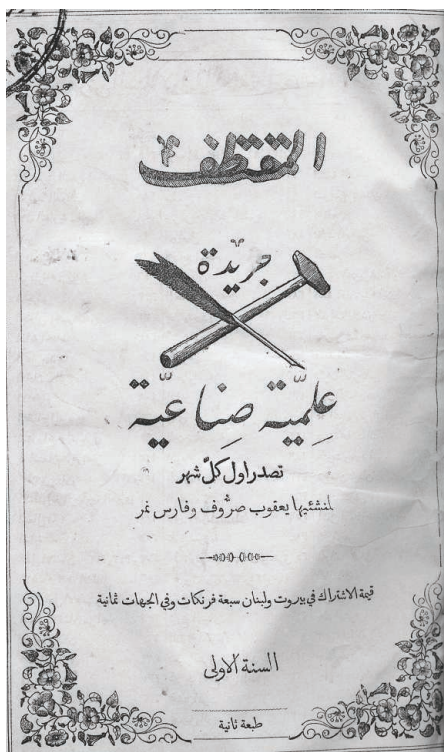 المقتطف
جريدة
علميّة صِناعيّة
تصدر اول كلّ شهر
لمنشئيها يعقوب صرُّوف وفارس نمر
قيمة الاشتراك في بيروت ولبنان سبعة فرنكات وفي الجهات ثمانية
السنة الاولى
طبعة ثانية